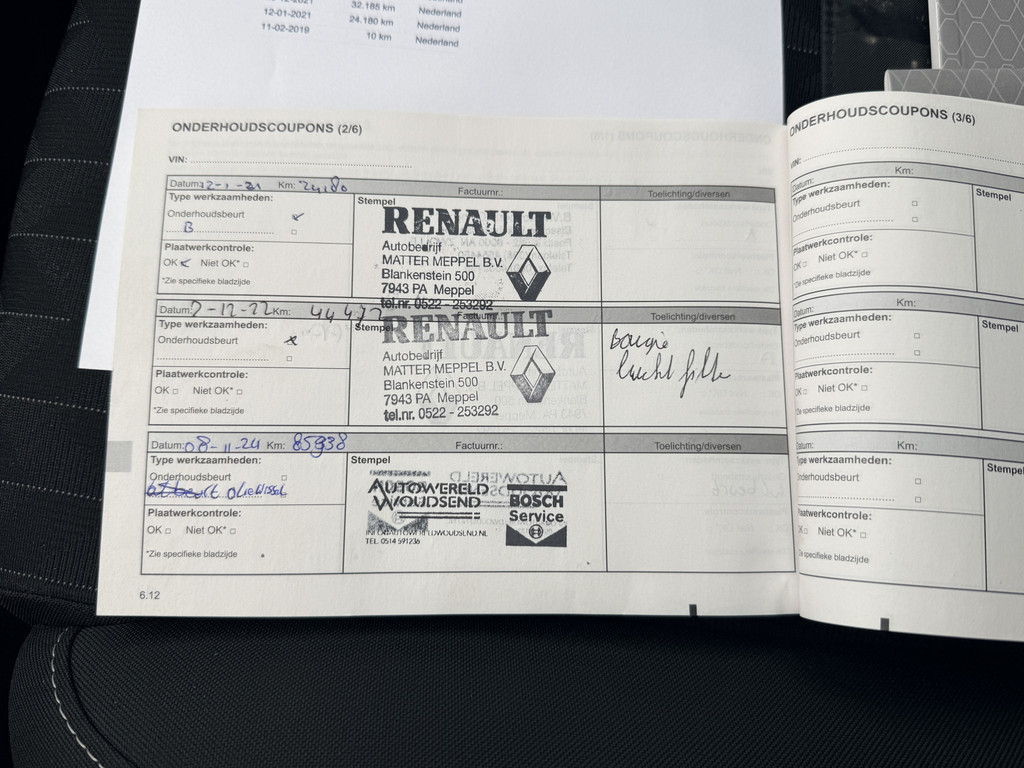 32.185 km Nederland
12-01-2021 24.180 km Nederland
11-02-2019 10 km Nederland
ONDERHOUDSCOUPONS (2/6)
VIN:
Datum: 12-1-21 Km: 24180 Factuurnr.: Toelichting/diversen
Type werkzaamheden:
Onderhoudsbeurt
B
Plaatwerkcontrole:
OK Niet OK*
*Zie specifieke bladzijde
Stempel
RENAULT
Autobedrijf
MATTER MEPPEL B.V.
Blankenstein 500
7943 PA Meppel
tel.nr. 0522 - 253292
Datum: 7-12-22 Km: 44477 Factuurnr.: Toelichting/diversen
Type werkzaamheden:
Onderhoudsbeurt
Plaatwerkcontrole:
OK Niet OK*
*Zie specifieke bladzijde
Stempel
RENAULT
Autobedrijf
MATTER MEPPEL B.V.
Blankenstein 500
7943 PA Meppel
tel.nr. 0522 - 253292
Bougie
lucht filte
Datum: 08-11-24 Km: 85938 Factuurnr.: Toelichting/diversen
Type werkzaamheden:
Onderhoudsbeurt
oliewissel
Plaatwerkcontrole:
OK Niet OK*
*Zie specifieke bladzijde
Stempel
AUTOWERELD
WOUDSEND
INFO@AUTOWERELDWOUDSEND.NL
TEL. 0514 591236
BOSCH
Service
6.12
ONDERHOUDSCOUPONS (3/6)
VIN:
Datum: Km:
Type werkzaamheden:
Onderhoudsbeurt
Plaatwerkcontrole:
OK Niet OK*
*Zie specifieke bladzijde
Stempel
Datum: Km:
Type werkzaamheden:
Onderhoudsbeurt
Plaatwerkcontrole:
OK Niet OK*
*Zie specifieke bladzijde
Stempel
Datum: Km:
Type werkzaamheden:
Onderhoudsbeurt
Plaatwerkcontrole:
OK Niet OK*
*Zie specifieke bladzijde
Stempel